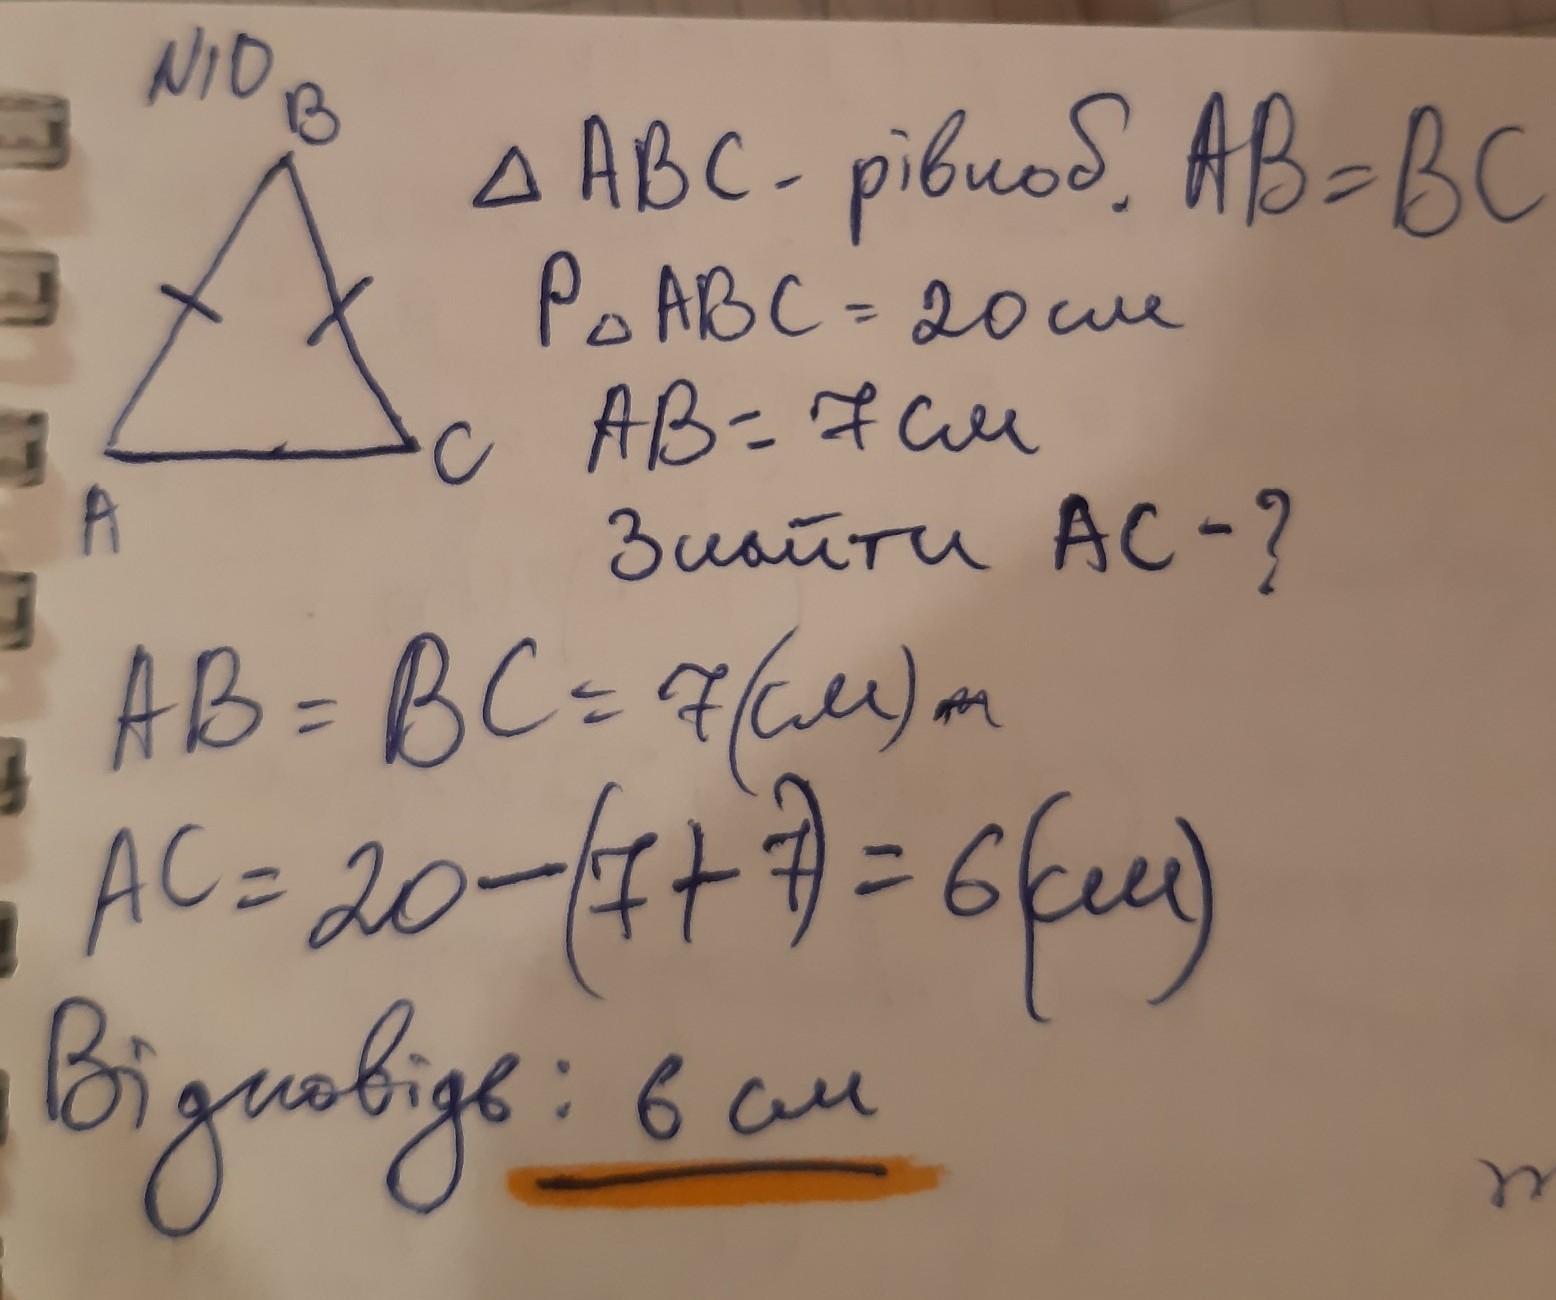 N10
B
△ ABC - рівноб. AB = BC
P△ABC = 20 см
AB = 7 см
C
A
Знайти AC - ?
AB = BC = 7(см)
AC = 20 - (7 + 7) = 6(см)
Відповідь: 6 см